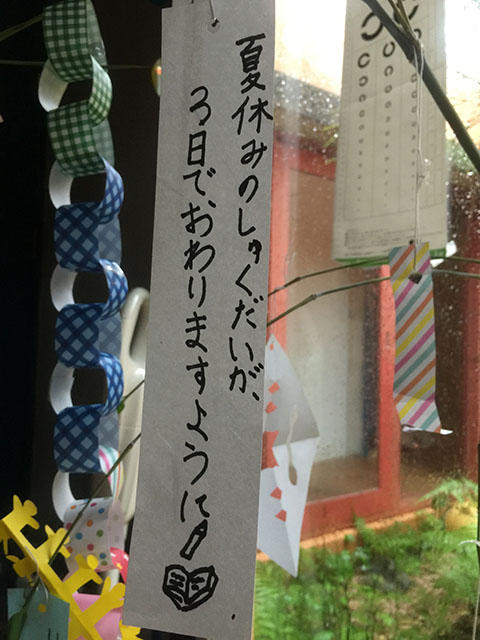 夏休みのしゅくだいが、
3日で、おわりますように